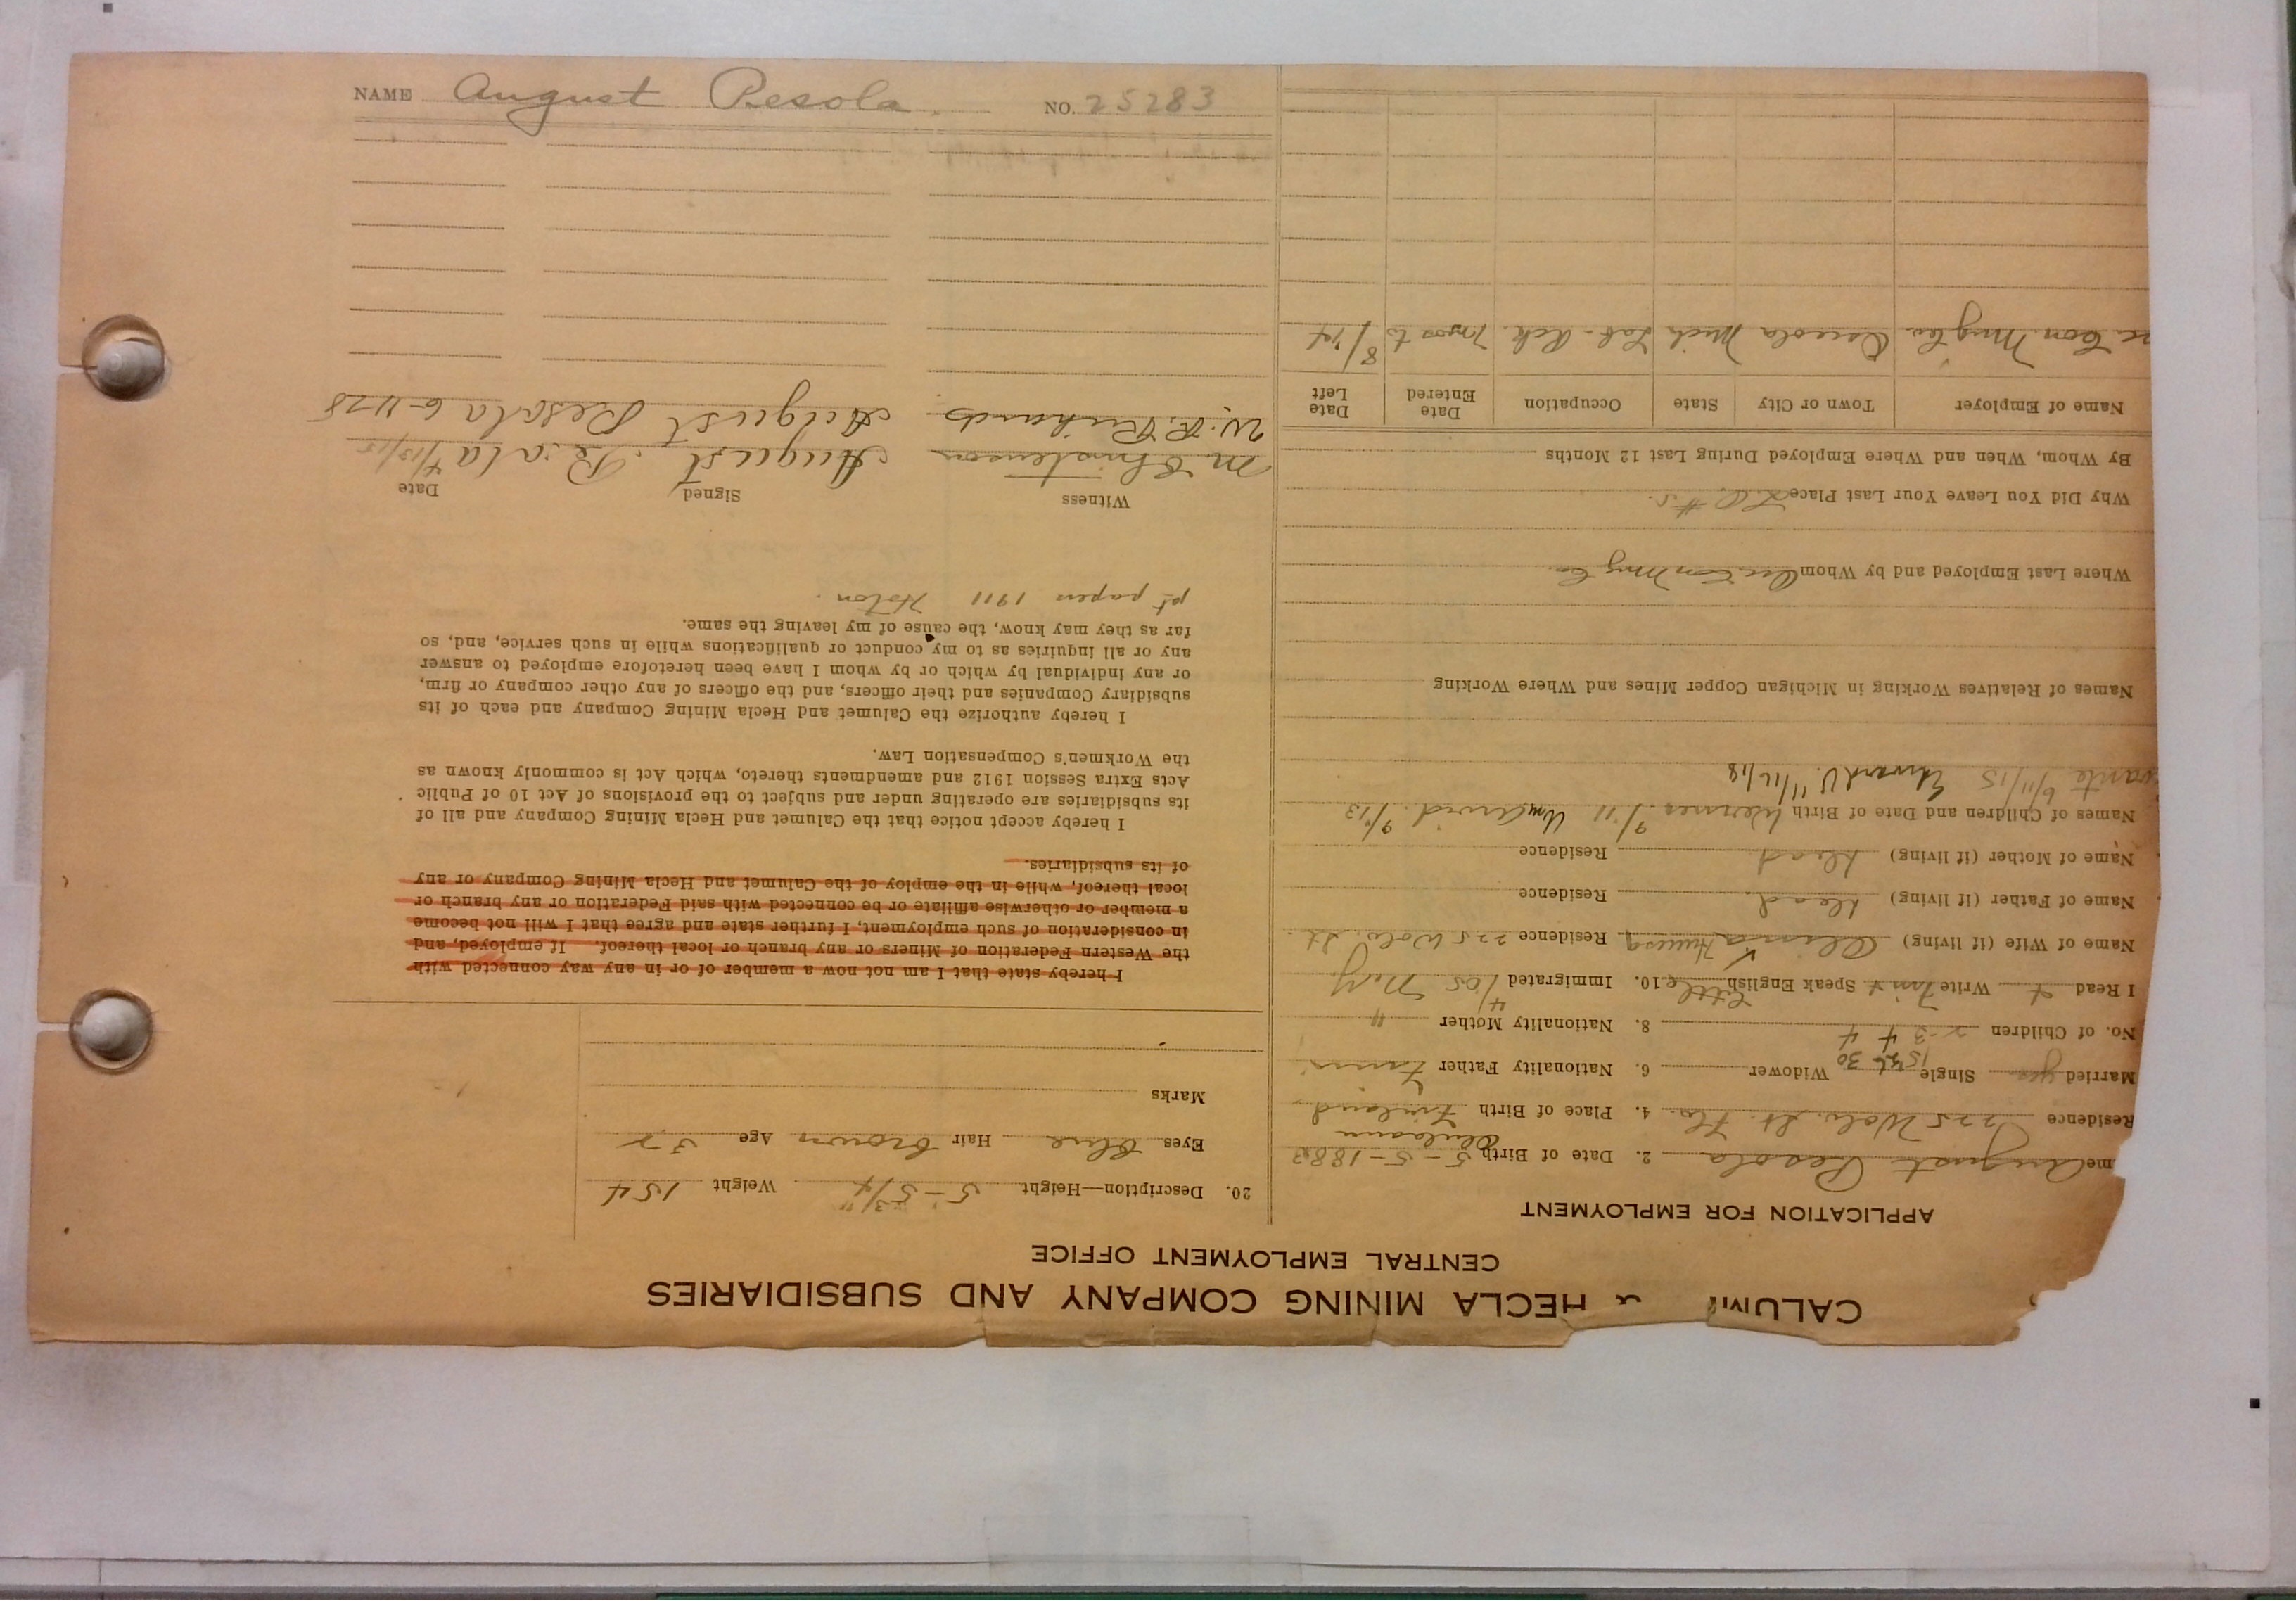 CALUM & HECLA MINING COMPANY AND SUBSIDIARIES
CENTRAL EMPLOYMENT OFFICE
APPLICATION FOR EMPLOYMENT
me August Pesola 2. Date of Birth 5-5-1883
Residence 225 Wol. St. Fla. 4. Place of Birth Finland
Married yes Single Widower 6. Nationality Father Finn
No. of Children 8. Nationality Mother "
I Read + Write Finn + Speak English little 10. Immigrated 4/05
Name of Wife (if living) Residence 225 Wol. St.
Name of Father (if living) dead Residence
Name of Mother (if living) dead Residence
Names of Children and Date of Birth 9/11 9/13
6/11/15 Edward V. 11/12/18
Names of Relatives Working in Michigan Copper Mines and Where Working
Where Last Employed and by Whom Osc Con Mng Co.
Why Did You Leave Your Last Place #5.
By Whom, When and Where Employed During Last 12 Months
Name of Employer Town or City State Occupation Date Entered Date Left
Con Mng Co. Osceola Mich 8/14
20. Description—Height 5-5 3/4" Weight 154
Eyes Blue Hair brown Age 32
Marks
I hereby state that I am not now a member of or in any way connected with
the Western Federation of Miners or any branch or local thereof. If employed, and
in consideration of such employment, I further state and agree that I will not become
a member or otherwise affiliate or be connected with said Federation or any branch or
local thereof, while in the employ of the Calumet and Hecla Mining Company or any
of its subsidiaries.
I hereby accept notice that the Calumet and Hecla Mining Company and all of
its subsidiaries are operating under and subject to the provisions of Act 10 of Public
Acts Extra Session 1912 and amendments thereto, which Act is commonly known as
the Workmen's Compensation Law.
I hereby authorize the Calumet and Hecla Mining Company and each of its
subsidiary Companies and their officers, and the officers of any other company or firm,
or any individual by which or by whom I have been heretofore employed to answer
any or all inquiries as to my conduct or qualifications while in such service, and, so
far as they may know, the cause of my leaving the same.
pt papers 1911 Hoton.
Witness Signed Date
M Christenson August Pesala 4/13/15
W. R. Richards August Pesola 6-11-28
NAME August Pesola. NO. 25283